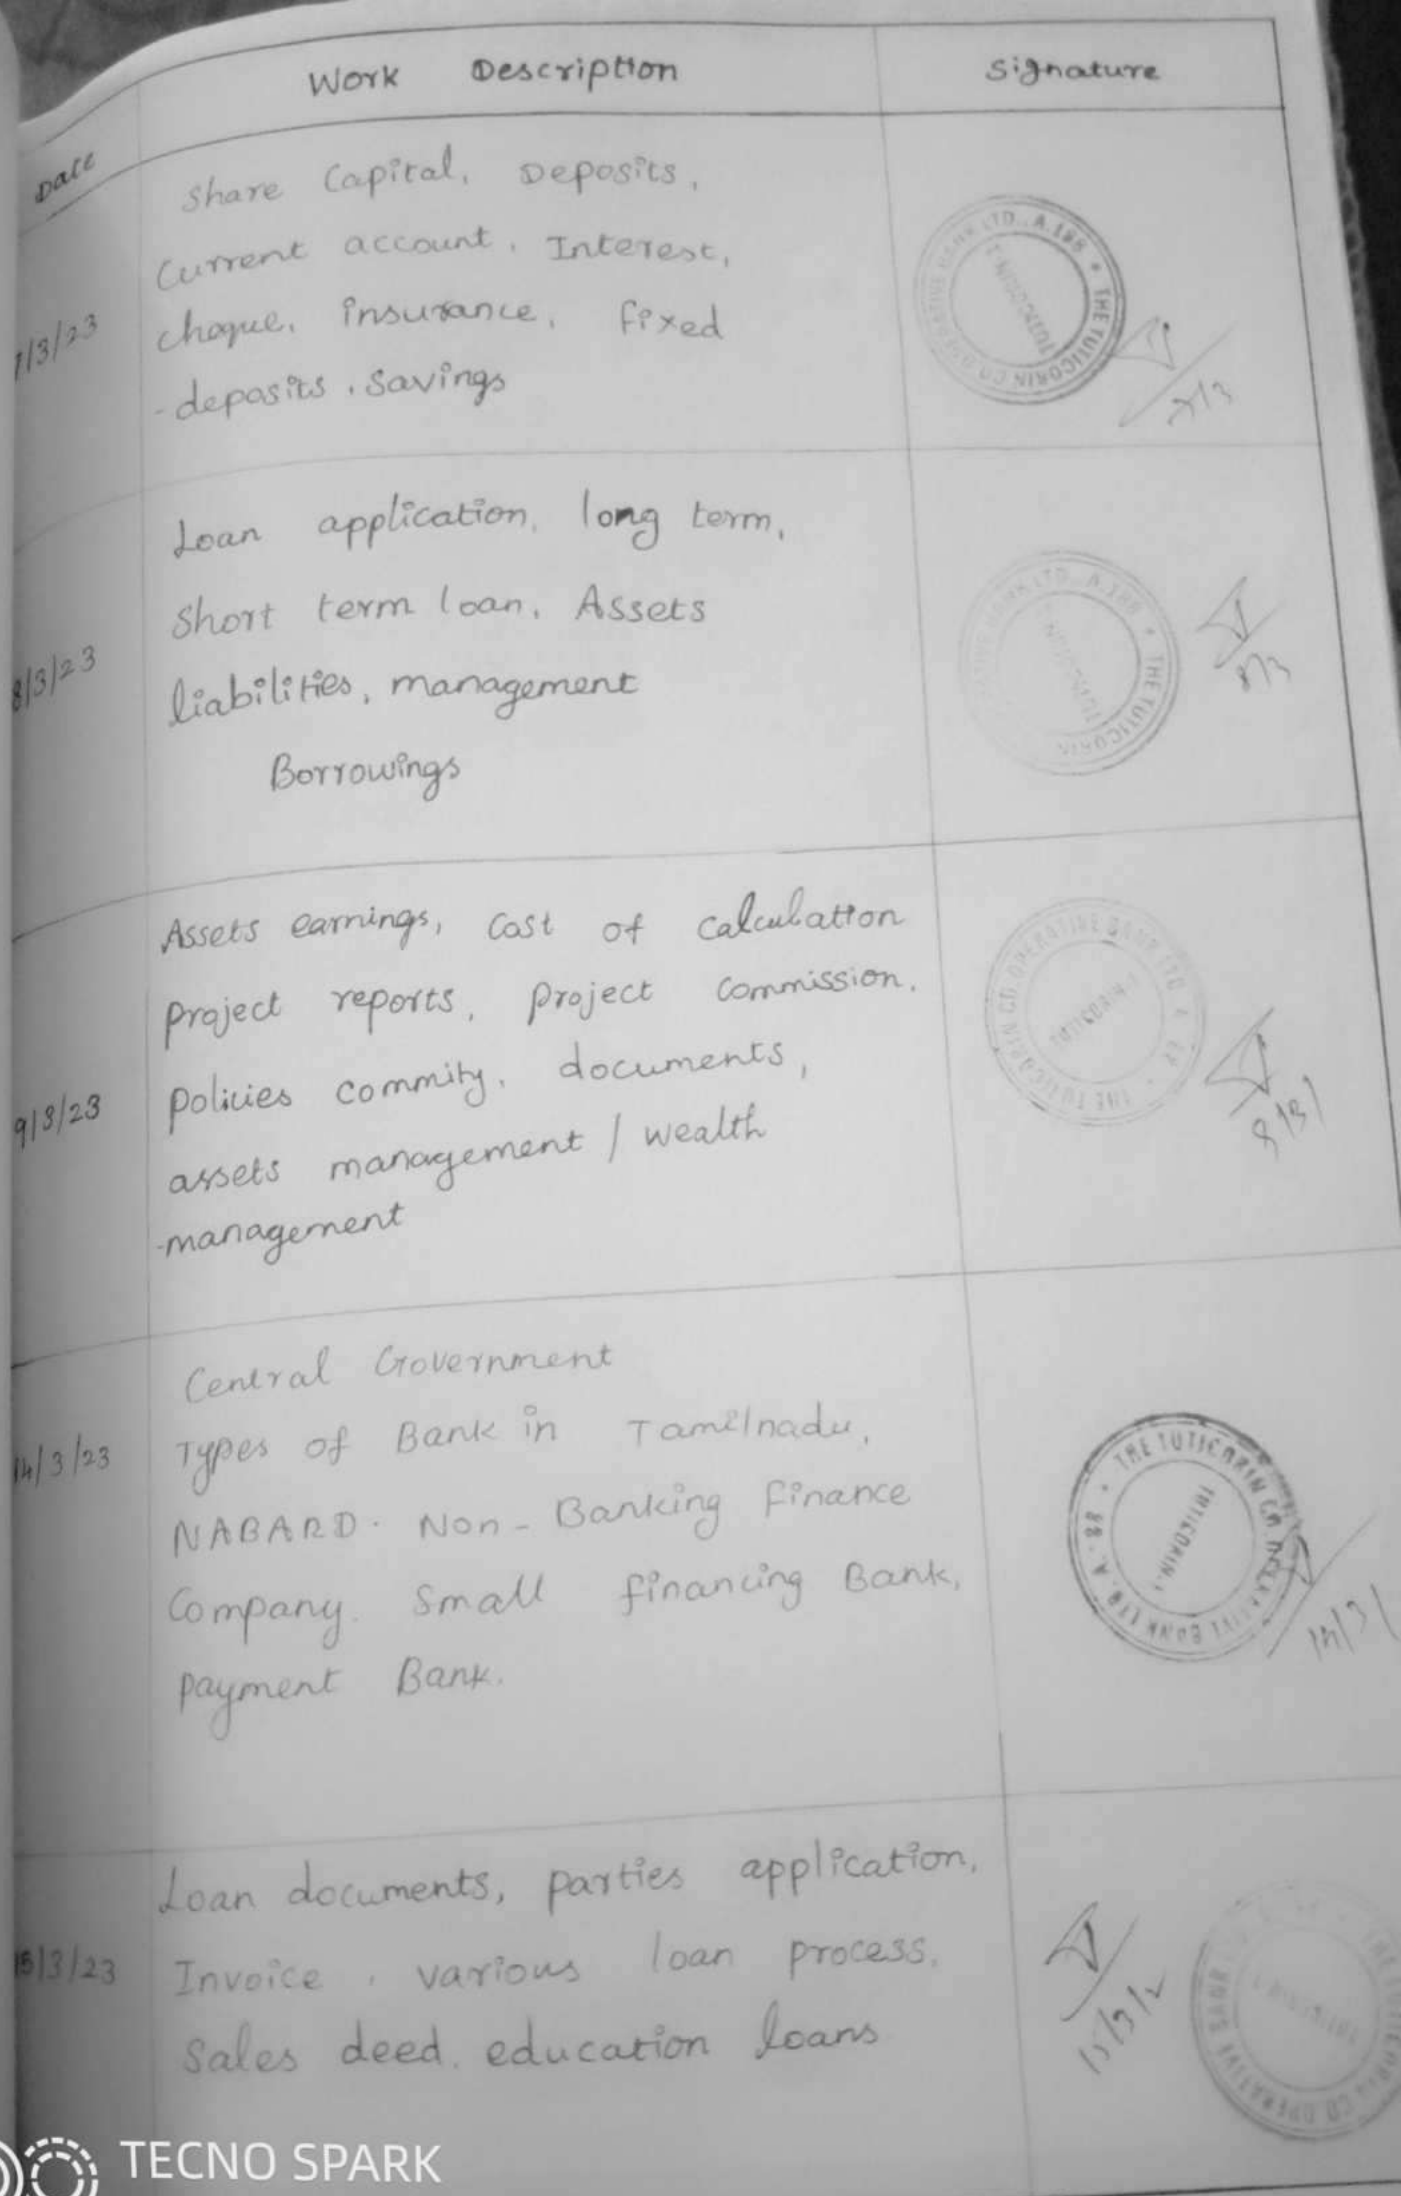 Date
Work Description
Signature
7/3/23
Share Capital, Deposits,
Current account, Interest,
cheque, insurance, fixed
-deposits, savings
THE TUTICORIN CO.OPERATIVE BANK LTD., A.188
TUTICORIN-1
7/3
8/3/23
Loan application, long term,
Short term loan, Assets
liabilities, management
Borrowings
THE TUTICORIN
BANK LTD., A.188
8/3
9/3/23
Assets earnings, cost of calculation
Project reports, project commission,
policies commity, documents,
assets management / wealth
-management
THE TUTICORIN CO.OPERATIVE BANK LTD
TUTICORIN-1
14/3/23
Central Government
Types of Bank in Tamilnadu,
NABARD. Non-Banking finance
Company. Small financing Bank,
payment Bank.
THE TUTICORIN CO.OPERATIVE BANK LTD., A.
TUTICORIN-1
14/3/
15/3/23
Loan documents, parties application,
Invoice, various loan process,
Sales deed, education loans
15/3/2
THE TUTICORIN CO OPERATIVE BANK
TUTICORIN-1
TECNO SPARK